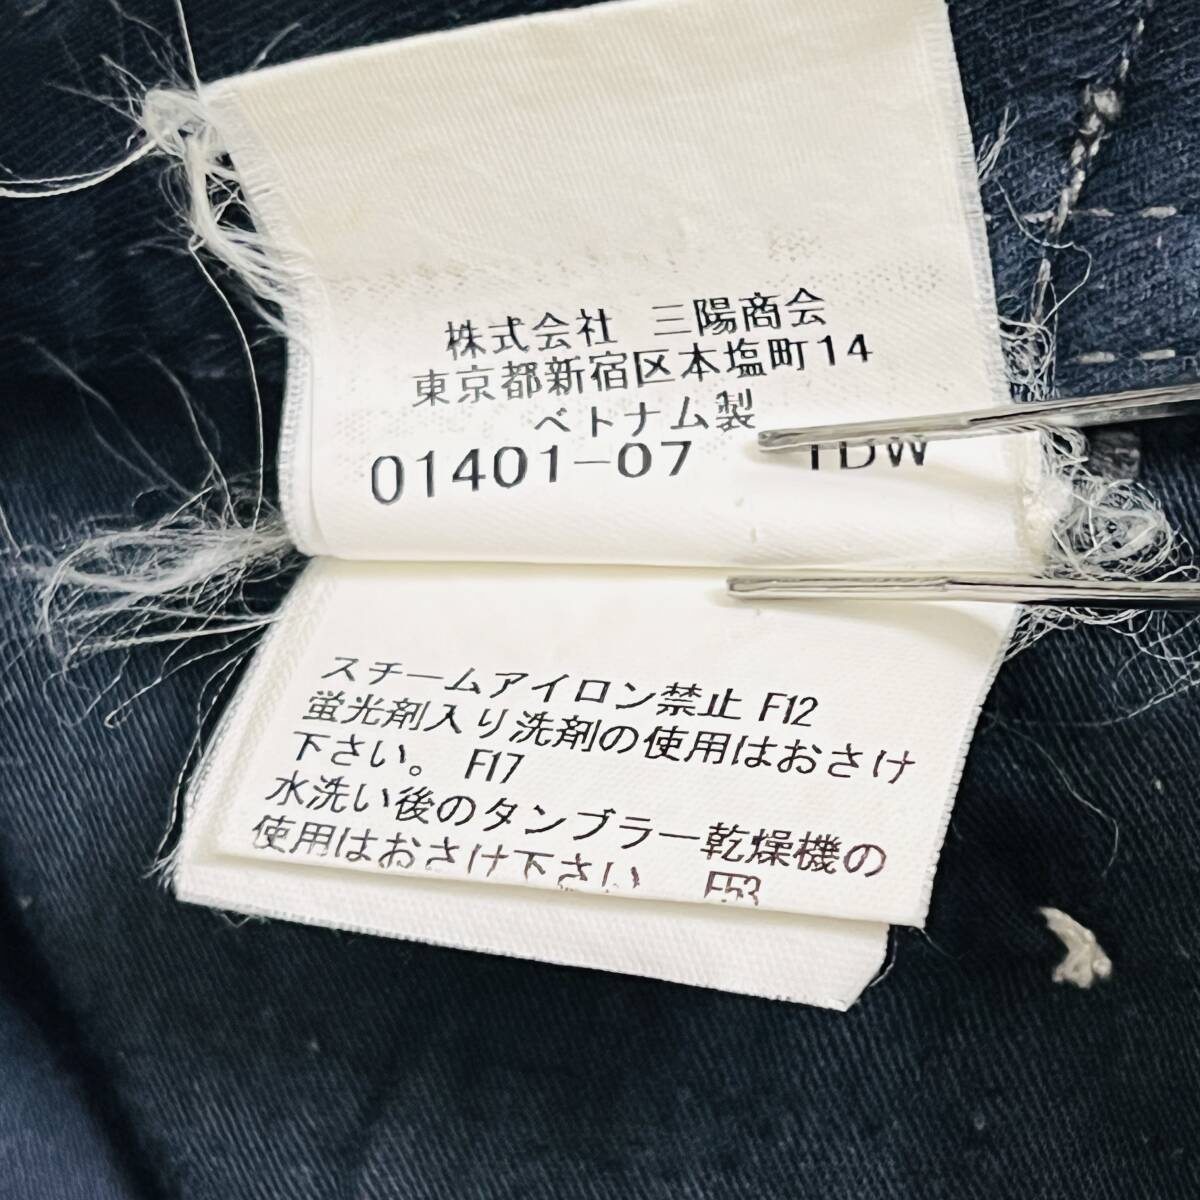 株式会社 三陽商会
東京都新宿区本塩町14
ベトナム製
01401-07 TDW
スチームアイロン禁止 F12
蛍光剤入り洗剤の使用はおさけ
下さい。 F17
水洗い後のタンブラー乾燥機の
使用はおさけ下さい F53